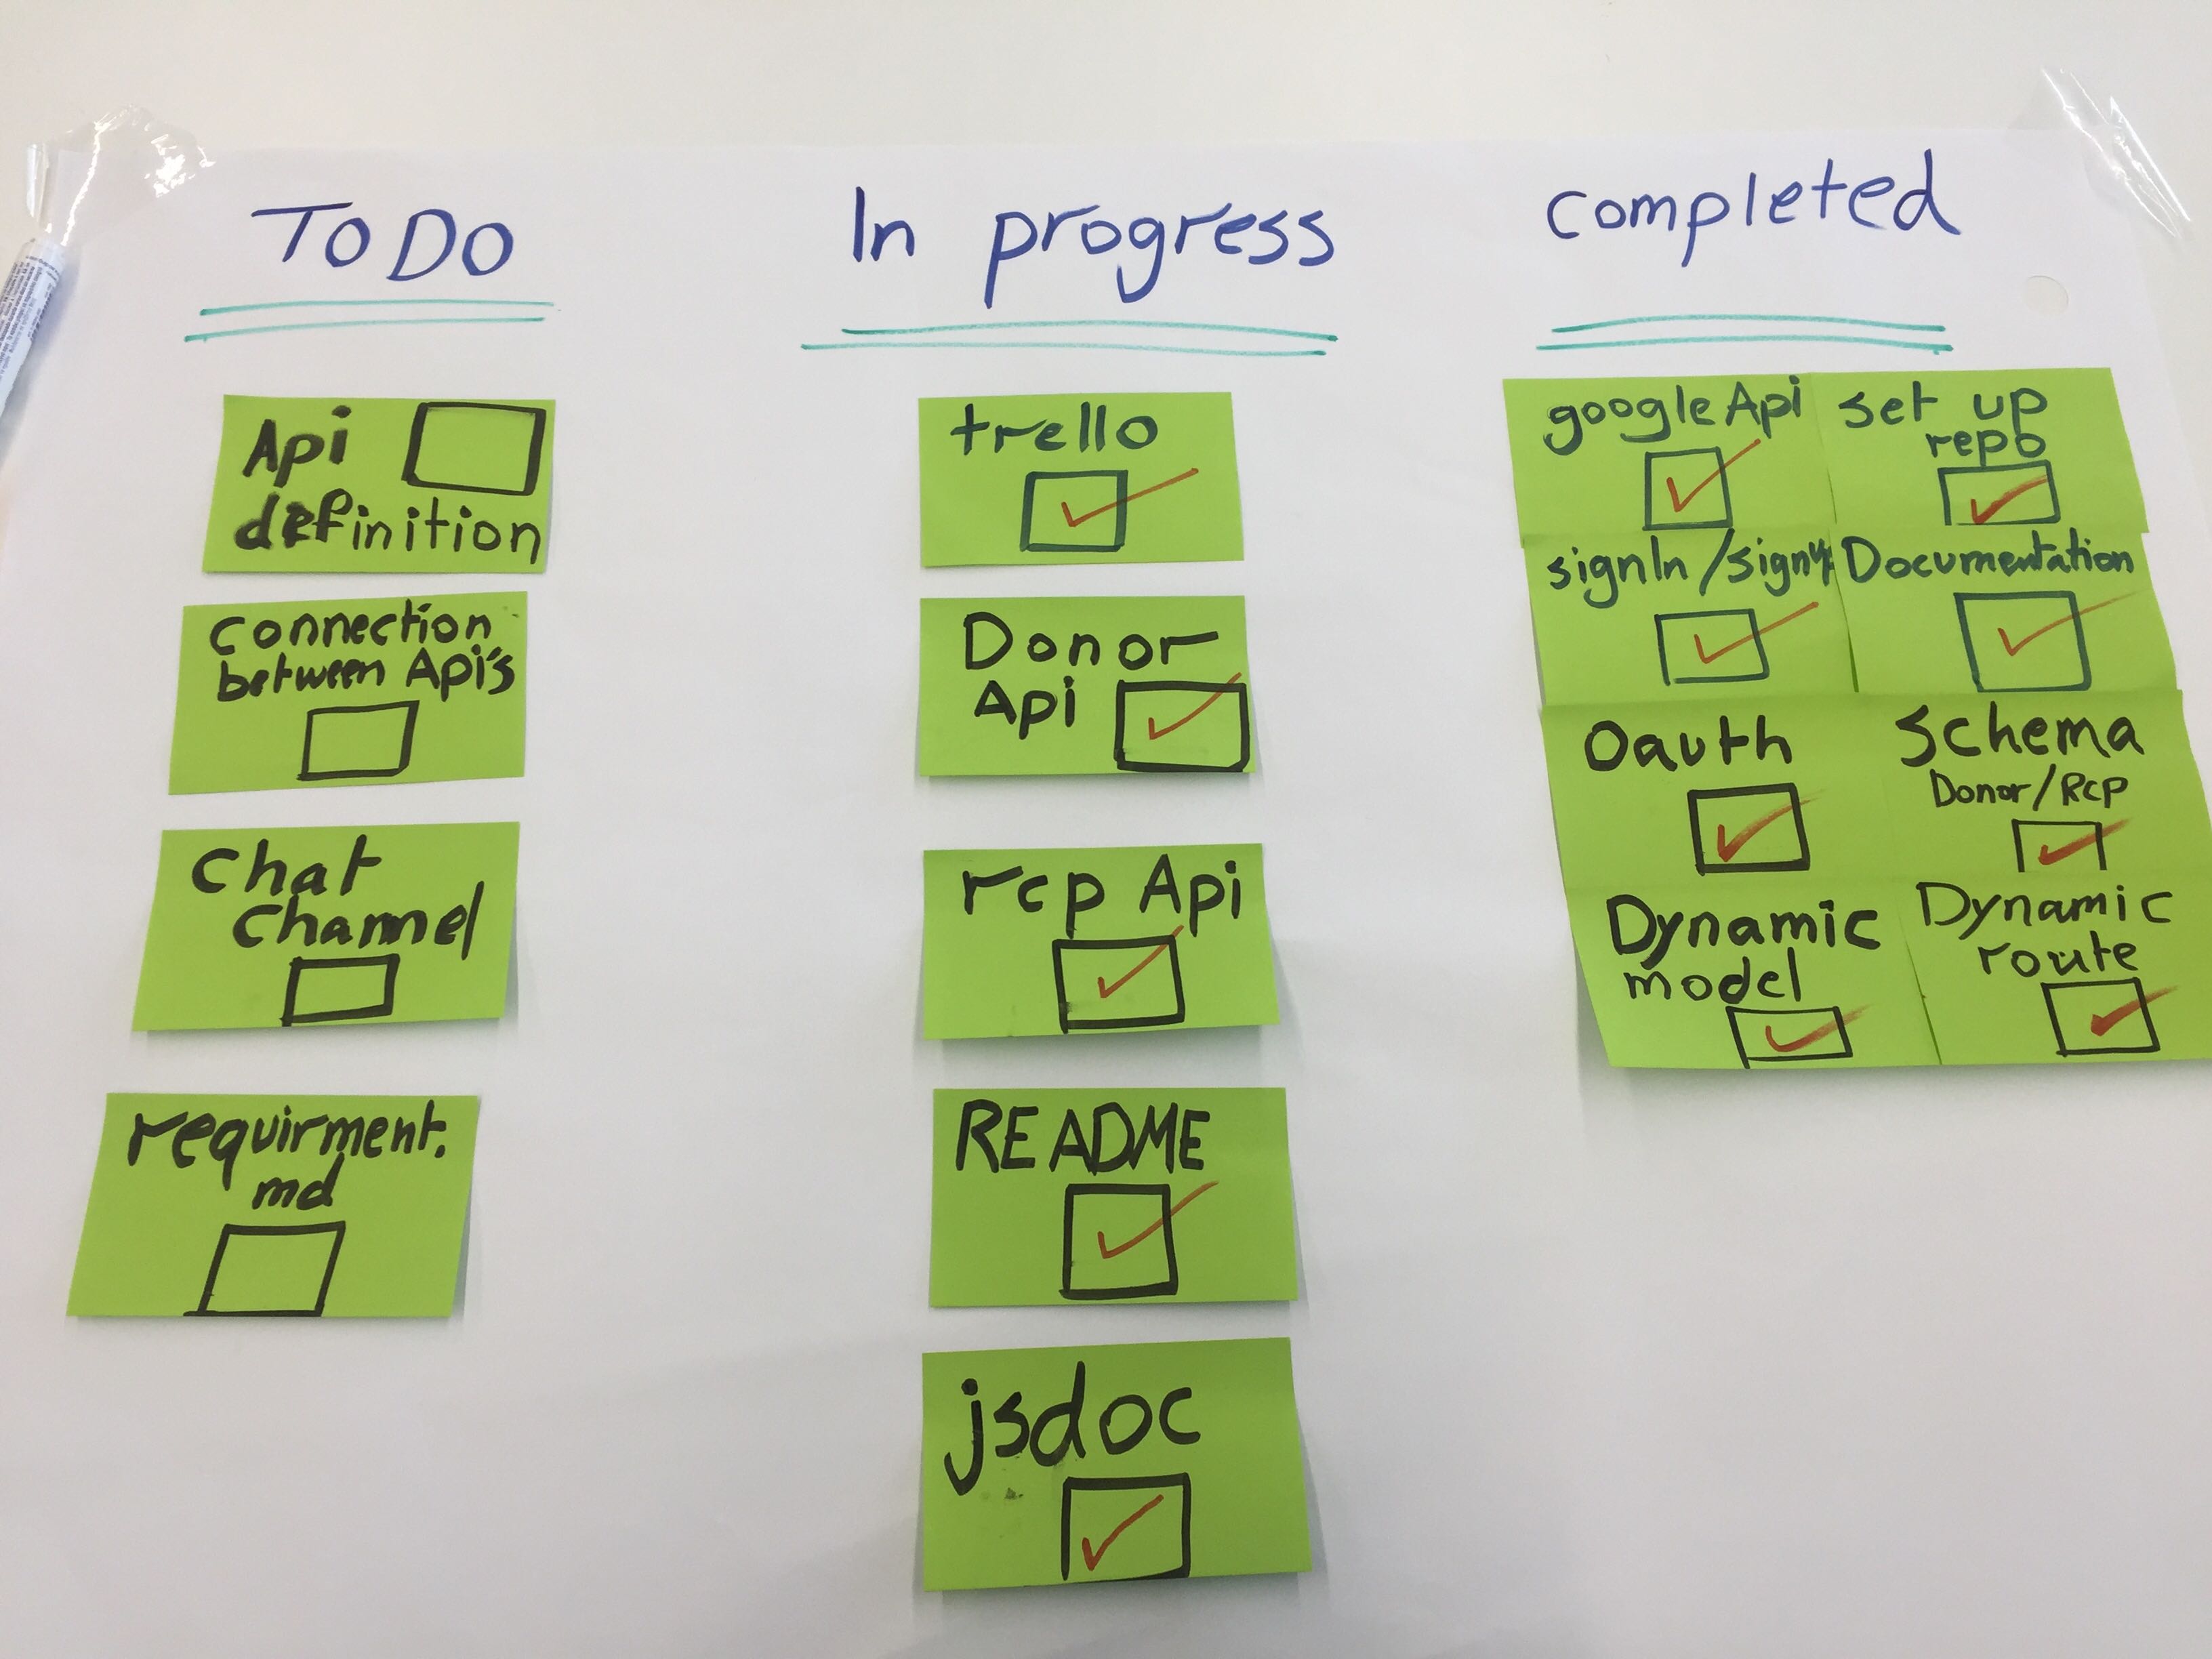 To DO
Api
definition
connection
between Api's
chat
channel
requirment.
md
In progress
trello
Donor
Api
rcp Api
README
jsdoc
completed
googleApi
set up
repo
signIn/signup
Documentation
Oauth
schema
Donor/Rcp
Dynamic
model
Dynamic
route